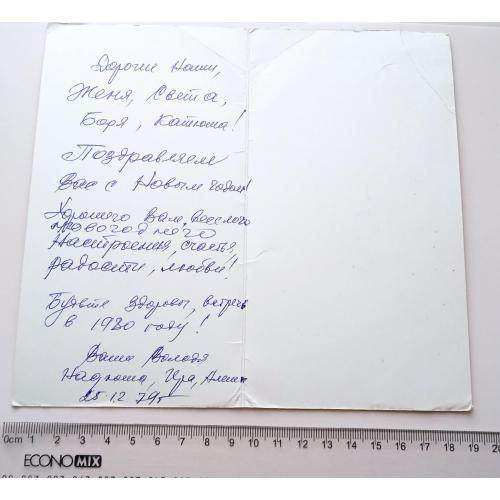 Дорогие Наши,
Женя, Света,
Боря, Катюша!
Поздравляем
Вас с Новым годом!
Хорошего Вам, веселого
Новогоднего
Настроения, счастья,
радости, любви!
Будьте здоровы, встреч
в 1980 году!
Ваши Володя
Надюша, Ира,
25.12.79г
0cm 1 2 3 4 5 6 7 8 9 10 11 12 13 14 15 16 17 18 19 20
ECONOMIX